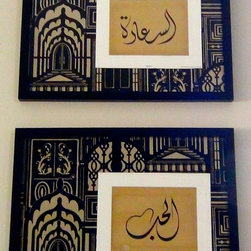 السعادة
الحب